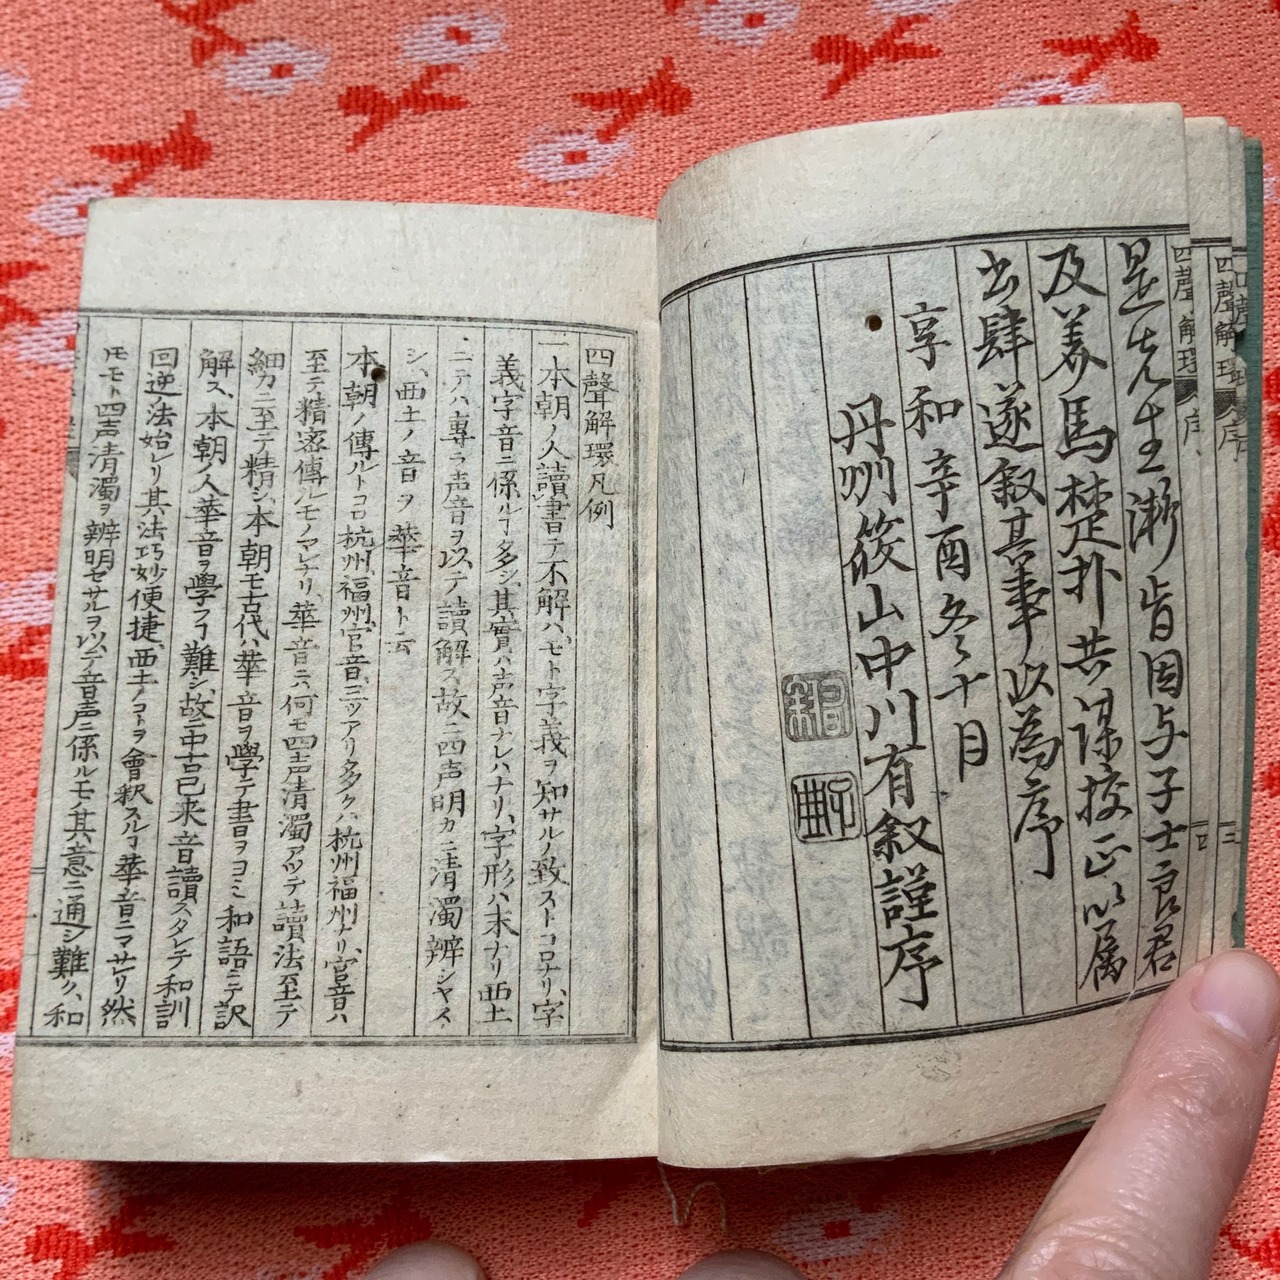 四聲解環 序
四聲解環 序 三
四聲解環 序 四
是先生漸皆因与子士良君
及義馬楚朴共謀挍正以属
書肆遂叙其事以為序
享和辛酉冬十月
丹州筱山中川有叙謹序
四聲解環凡例
一本朝ノ人讀書テ不解ハ、モト字義ヲ知サルノ致ストコロナリ、字
義字音ニ係ルヿ多シ、其實ハ声音ナレハナリ、字形ハ末ナリ西土
ニテハ專ラ声音ヲ以テ讀解ス、故ニ四声明カニ清濁辨シヤス
シ、西土ノ音ヲ華音ト云
本朝ノ傳ルトコロ杭州、福州、官音、三ツアリ多クハ杭州福州ナリ、官音ハ
至テ精密傳ルモノマレナリ、華音ニハ何モ四声清濁アツテ讀法至テ
細カニ至テ精シ、本朝モ古代ハ華音ヲ學テ書ヲヨミ和語ニテ訳
解ス、本朝ノ人華音ヲ學フヿ難シ、故ニ中古已来音讀スタレテ和訓
回逆ノ法始レリ其法巧妙便捷、西土ノコトヲ會釈スルヿ華音ニマサレリ然
レモモト四声清濁ヲ辨明セサルヲ以テ音声ニ係ルモノ其意ニ通シ難ク、和